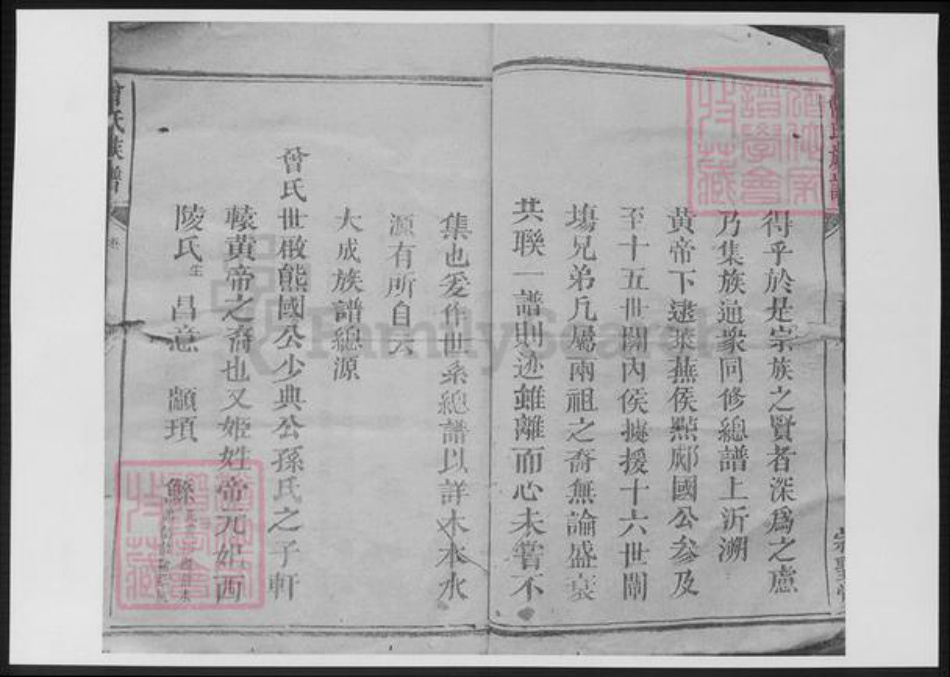 得乎於是宗族之賢者深爲之慮
乃集族通衆同修總譜上沂溯
黃帝下逮萊蕪侯點郕國公參及
至十五世關內侯據援十六世闡
塲兄弟凡屬兩祖之裔無論盛衰
共聯一譜則迹雖離而心未嘗不
集也爰作世系總譜以詳木本水
源有所自云
大成族譜總源
曾氏世啟熊國公少典公孫氏之子軒
轅黃帝之裔也又姬姓帝元妃西
陵氏生 昌意 顓頊 鯀
曾氏族譜
德林家譜學會收藏
德林家譜學會收藏
FamilySearch